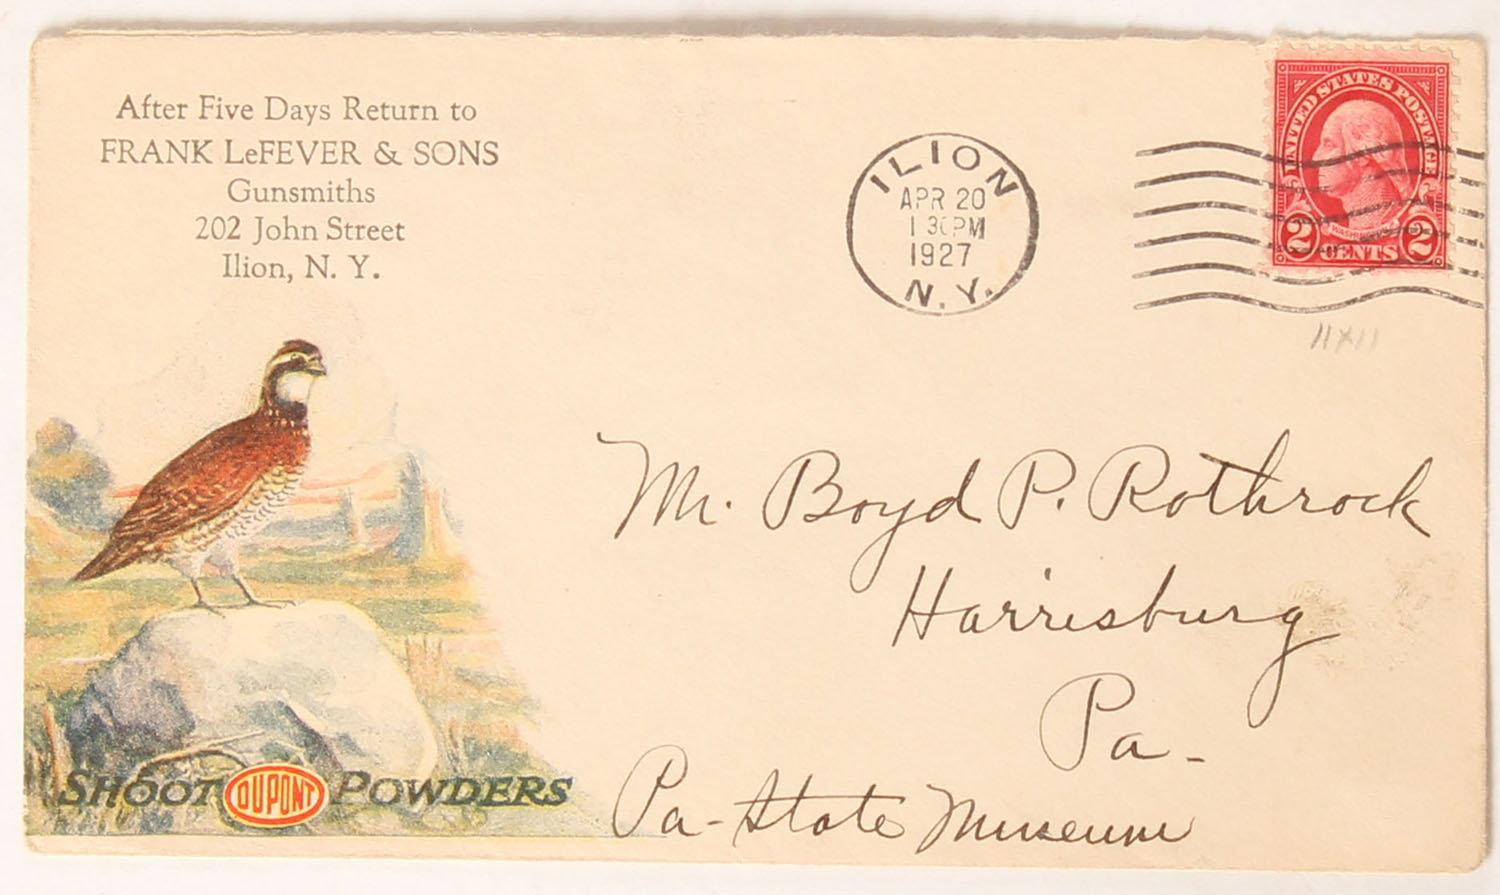 After Five Days Return to
FRANK LeFEVER & SONS
Gunsmiths
202 John Street
Ilion, N. Y.
ILION
APR 20
1 30 PM
1927
N.Y.
UNITED STATES POSTAGE
WASHINGTON
2 CENTS 2
11x11
Mr. Boyd P. Rothrock
Harrisburg
Pa-
Pa-State Museum
SHOOT DUPONT POWDERS